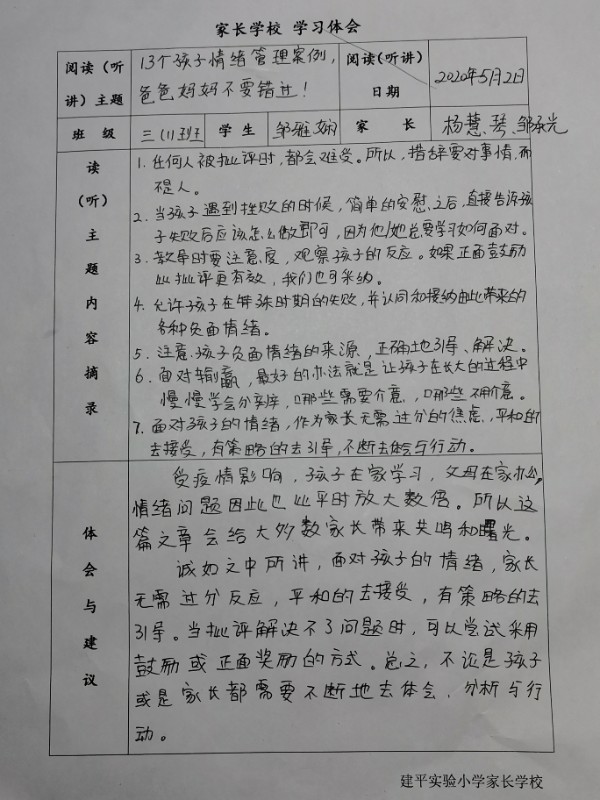 家长学校 学习体会
阅读（听讲）主题
13个孩子情绪管理案例，
爸爸妈妈不要错过！
阅读（听讲）日期
2020年5月21日
班 级
三(1)班
学生
邹雅娴
家 长
杨慧琴、邹承光
读（听）主题内容摘录
1. 任何人被批评时，都会难受。所以，措辞要对事情，而
不是人。
2. 当孩子遇到挫败的时候，简单的安慰之后，直接告诉孩
子失败后应该怎么做即可，因为他/她总要学习如何面对。
3. 教导时要注意度，观察孩子的反应。如果正面鼓励
比批评更有效，我们也可采纳。
4. 允许孩子在练习时期的失败，并认同和接纳由此带来的
各种负面情绪。
5. 注意孩子负面情绪的来源，正确地引导、解决。
6. 面对输赢，最好的办法就是让孩子在长大的过程中
慢慢学会分辨，哪些需要介意，哪些不用介意。
7. 面对孩子的情绪，作为家长无需过分的焦虑，平和的
去接受，有策略的去引导，不断去体会与行动。
体会与建议
受疫情影响，孩子在家学习，父母在家办公，
情绪问题因此也比平时放大数倍。所以这
篇文章会给大多数家长带来共鸣和曙光。
诚如文中所讲，面对孩子的情绪，家长
无需过分反应，平和的去接受，有策略的去
引导。当批评解决不了问题时，可以尝试采用
鼓励或正面奖励的方式。总之，不论是孩子
或是家长都需要不断地去体会，分析与行
动。
建平实验小学家长学校